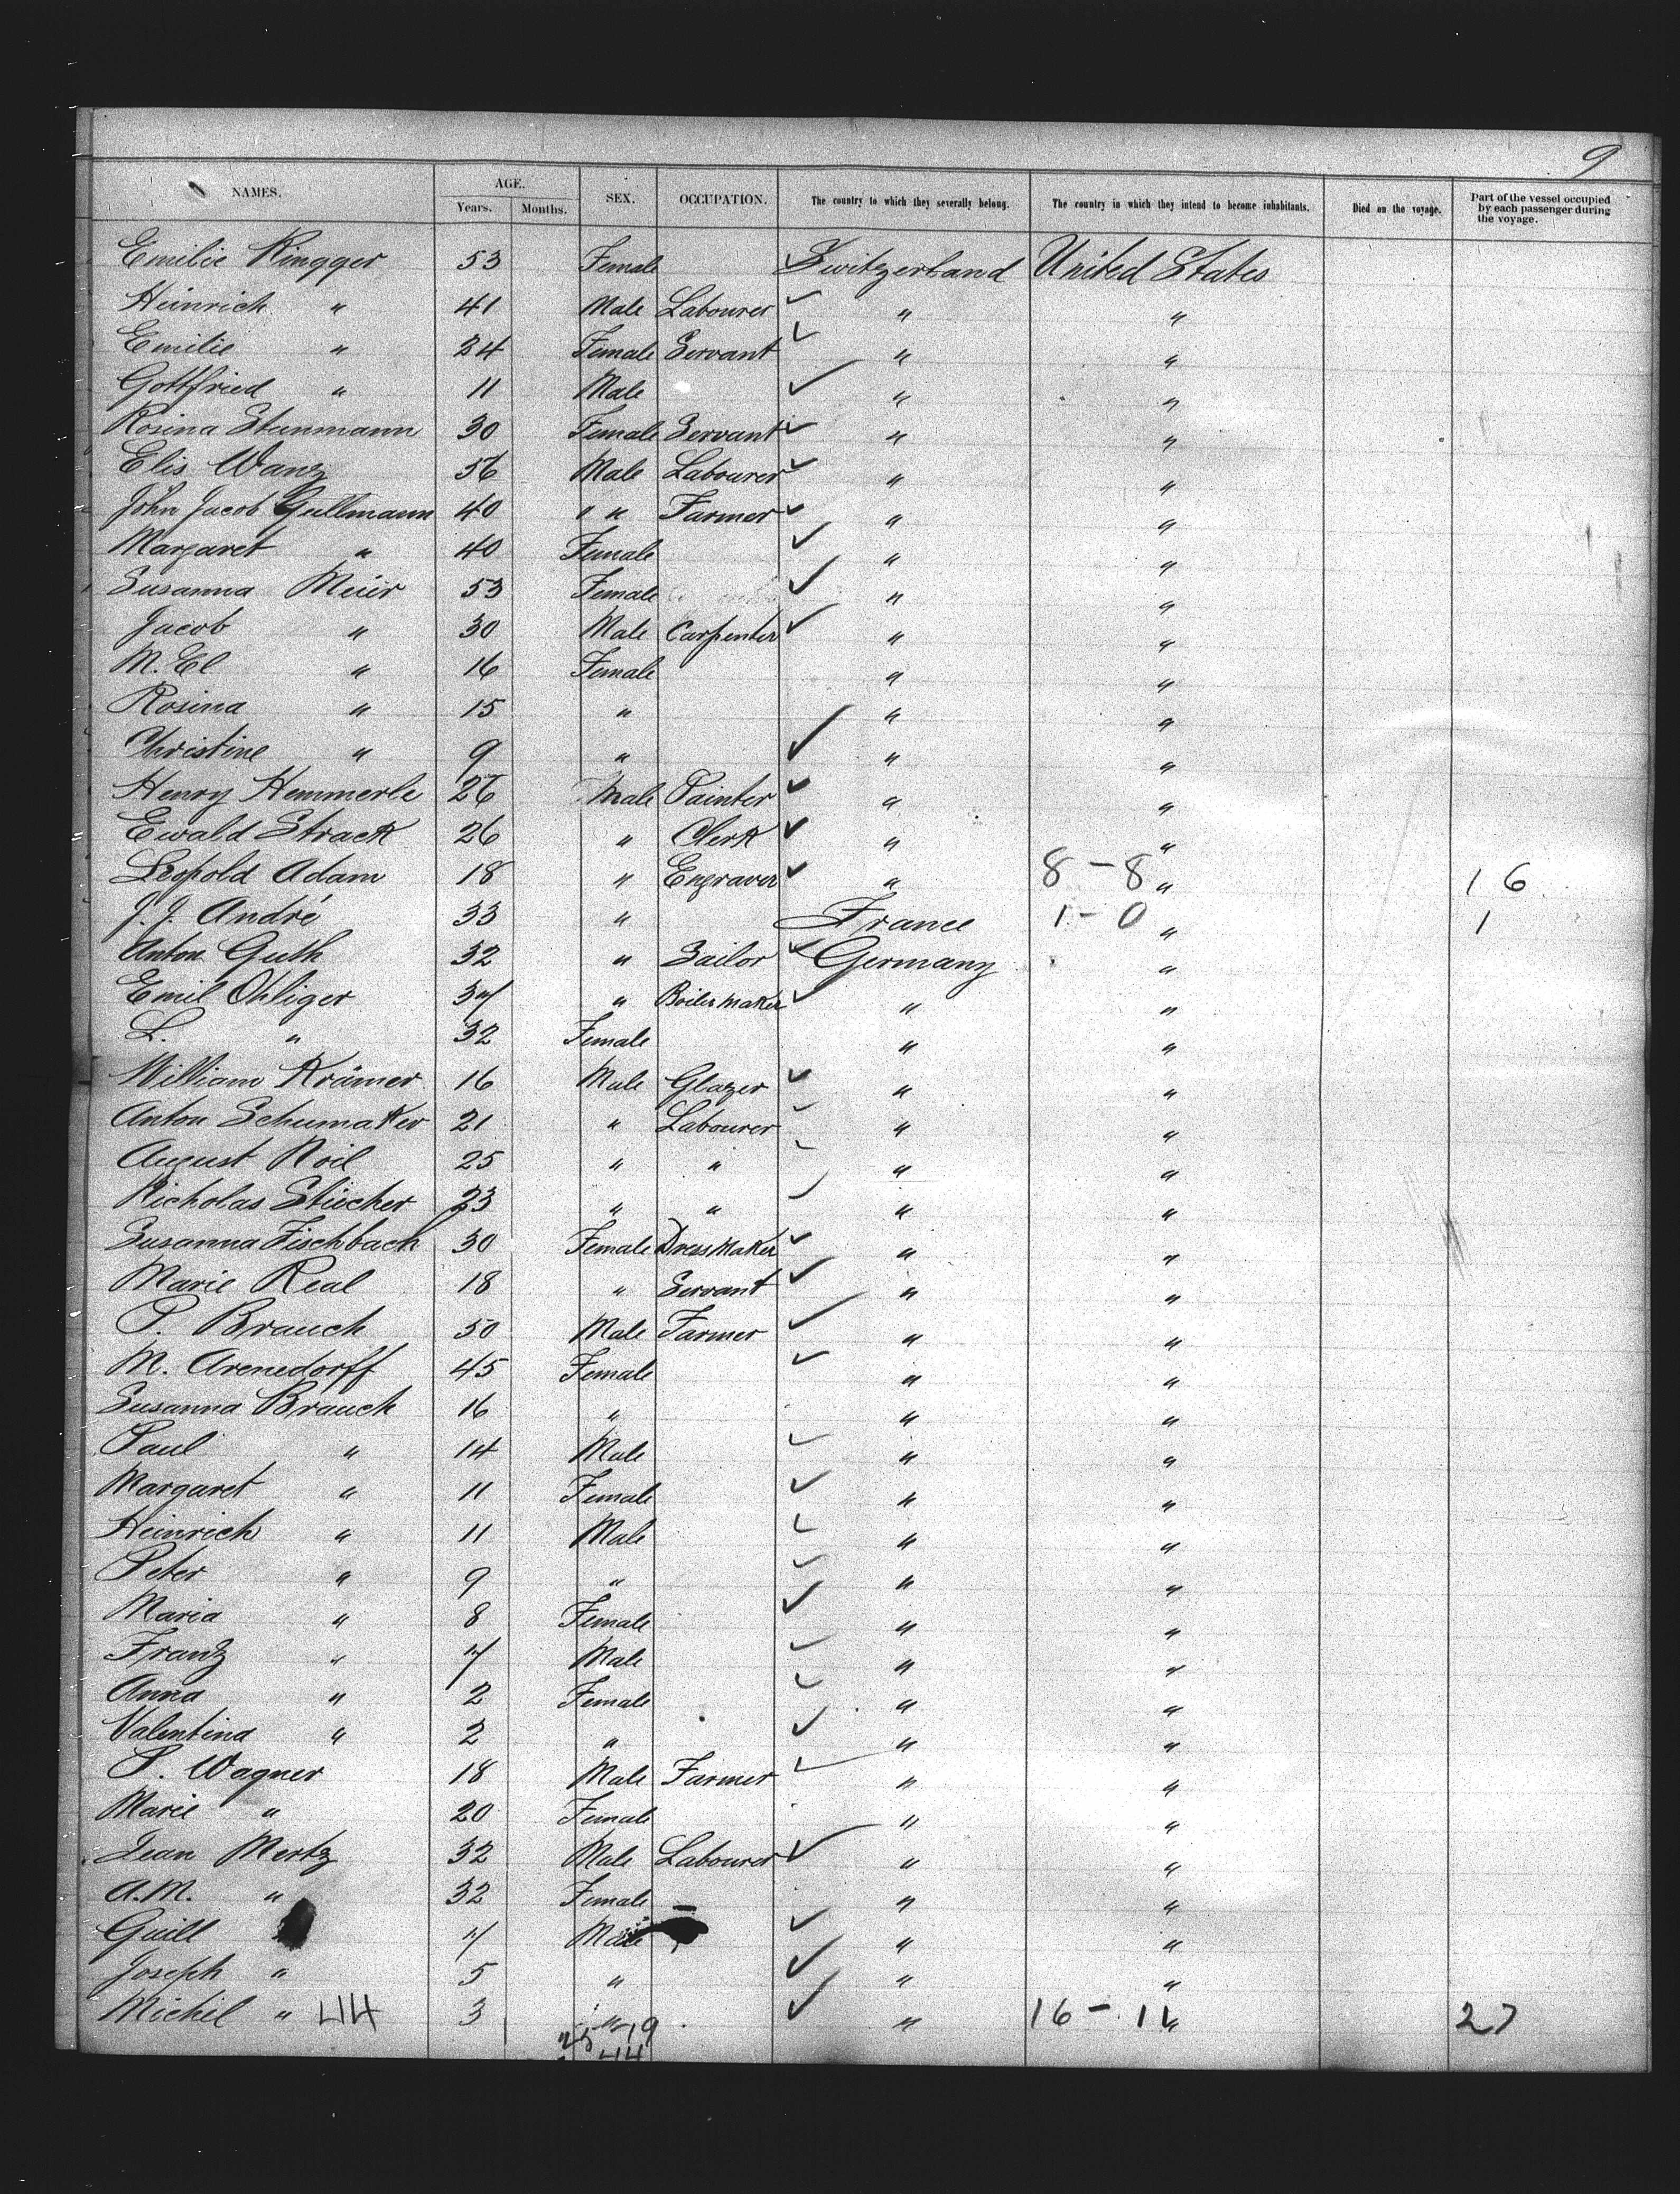 9
NAMES. AGE. Years. Months. SEX. OCCUPATION. The country to which they severally belong. The country in which they intend to become inhabitants. Died on the voyage. Part of the vessel occupied by each passenger during the voyage.
Emilie Ringger 53 Female Switzerland United States
Heinrich " 41 Male Labourer " "
Emilie " 24 Female Servant " "
Gottfried " 11 Male " "
Rosina Stunmann 30 Female Servant " "
Elis Wanz 56 Male Labourer " "
John Jacob Gullmann 40 " " Farmer " "
Margaret " 40 Female " "
Susanna Meier 53 Female " "
Jacob " 30 Male Carpenter " "
M. El " 16 Female " "
Rosina " 15 " " "
Christine " 9 " " "
Henry Hemmerle 26 Male Painter " "
Ewald Strack 26 " Clerk " "
Leopold Adam 18 " Engraver " 8 - 8 " 16
J. J. André 33 " France 1 - 0 " 1
Anton Guth 32 " Sailor Germany "
Emil Ohliger 34 " Boilermaker " "
L. " 32 Female " "
William Krämer 16 Male Glazer " "
Anton Schumaker 21 " Labourer " "
August Roil 25 " " " "
Nicholas Stücker 23 " " " "
Susanna Fischbach 30 Female Dressmaker " "
Marie Real 18 " Servant " "
P. Brauch 50 Male Farmer " "
M. Arenedorff 45 Female " "
Susanna Brauch 16 " " "
Paul " 14 Male " "
Margaret " 11 Female " "
Heinrich " 11 Male " "
Peter " 9 " " "
Maria " 8 Female " "
Franz " 7 Male " "
Anna " 2 Female " "
Valentina " 2 " " "
P. Wagner 18 Male Farmer " "
Marie " 20 Female " "
Jean Mertz 32 Male Labourer " "
A.M. " 32 Female " "
Guill 7 Male " "
Joseph " 5 " " "
Michel " 44 3 " " 16 - 11 " 27
25 19
44